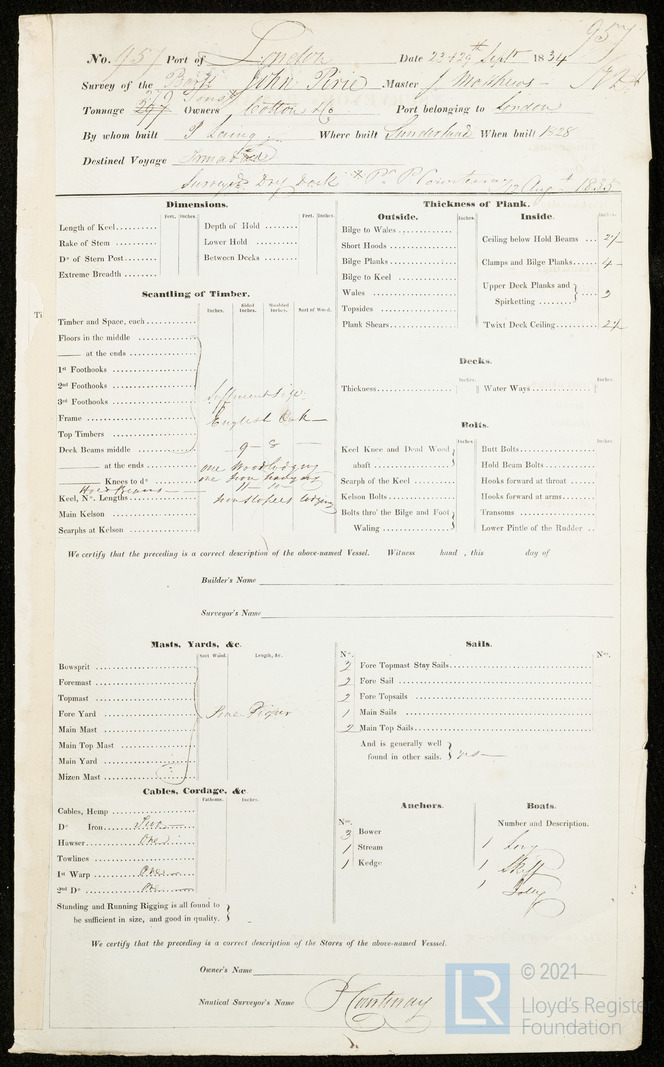 957
No. 957 Port of London Date 23 & 29th Septr 1834
Survey of the Barq John Pirie Master J Matthews
Tonnage 297 Tons Owners Cotton & Co Port belonging to London
By whom built P Laing Where built Sunderland When built 1828
Destined Voyage
Surveyed Dry Dock & Pr P Courtenay 12 Augt 1835
Dimensions.
Feet. Inches. Feet. Inches.
Length of Keel
Depth of Hold
Rake of Stem
Lower Hold
Do of Stern Post
Between Decks
Extreme Breadth
Thickness of Plank.
Outside. Inches. Inside. Inches.
Bilge to Wales
Short Hoods
Bilge Planks
Bilge to Keel
Wales
Topsides
Plank Shears
Ceiling below Hold Beams 2½
Clamps and Bilge Planks 4
Upper Deck Planks and
Spirketting 3
Twixt Deck Ceiling 2½
Scantling of Timber.
Inches. Sided Inches. Moulded Inches. Sort of Wood.
Timber and Space, each
Floors in the middle
—— at the ends
1st Foothooks
2nd Foothooks
3rd Foothooks Sufficient Size
Frame English Oak
Top Timbers
Deck Beams middle 9 - 8
—— at the ends one Wood lodging
—— Knees to do one Iron hanging
Hold Beams
Keel, No. Lengths Iron Staples lodging
Main Kelson
Scarphs at Kelson
Decks.
Inches. Inches.
Thickness
Water Ways
Bolts.
Inches. Inches.
Keel Knee and Dead Wood
abaft
Scarph of the Keel
Kelson Bolts
Bolts thro' the Bilge and Foot
Waling
Butt Bolts
Hold Beam Bolts
Hooks forward at throat
Hooks forward at arms
Transoms
Lower Pintle of the Rudder
We certify that the preceding is a correct description of the above-named Vessel. Witness hand , this day of
Builder's Name
Surveyor's Name
Masts, Yards, &c.
Sort Wood. Length, &c.
Bowsprit
Foremast
Topmast
Fore Yard
Main Mast
Main Top Mast
Main Yard
Mizen Mast
Sails.
No. No.
2 Fore Topmast Stay Sails
2 Fore Sail
2 Fore Topsails
1 Main Sails
2 Main Top Sails
And is generally well
found in other sails. yes
Cables, Cordage, &c
Fathoms. Inches.
Cables, Hemp
Do Iron Two
Hawser One
Towlines
1st Warp One
2nd Do One
Standing and Running Rigging is all found to
be sufficient in size, and good in quality.
Anchors.
No.
3 Bower
1 Stream
1 Kedge
Boats.
Number and Description.
1 Long
1 Skiff
1 Jolly
We certify that the preceding is a correct description of the Stores of the above-named Vessel.
Owner's Name
Nautical Surveyor's Name P Courtenay
LR
© 2021
Lloyd's Register
Foundation